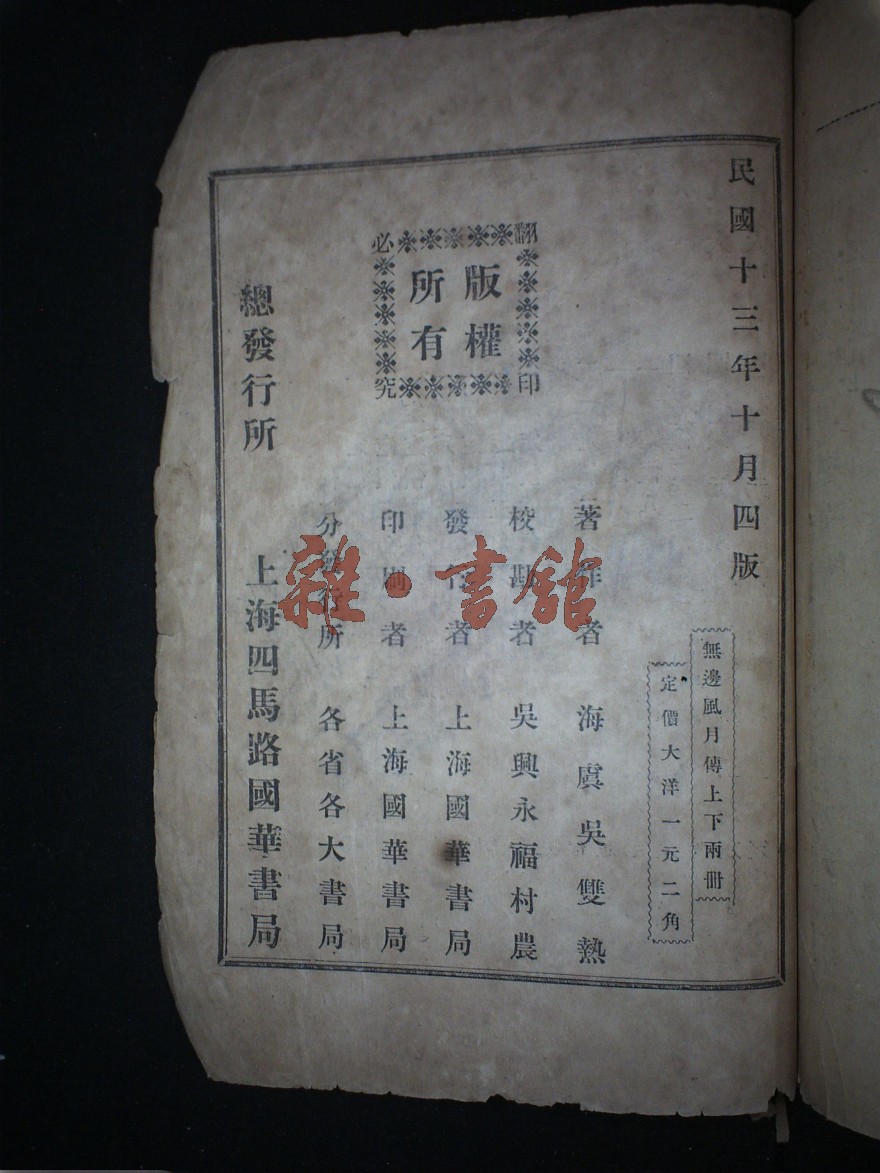 民國十三年十月四版
無邊風月傳上下兩冊
定價大洋一元二角
著作者 海虞吳雙熱
校勘者 吳興永福村農
發行者 上海國華書局
印刷者 上海國華書局
分發行所 各省各大書局
翻印必究
版權所有
總發行所 上海四馬路國華書局
雜·書館